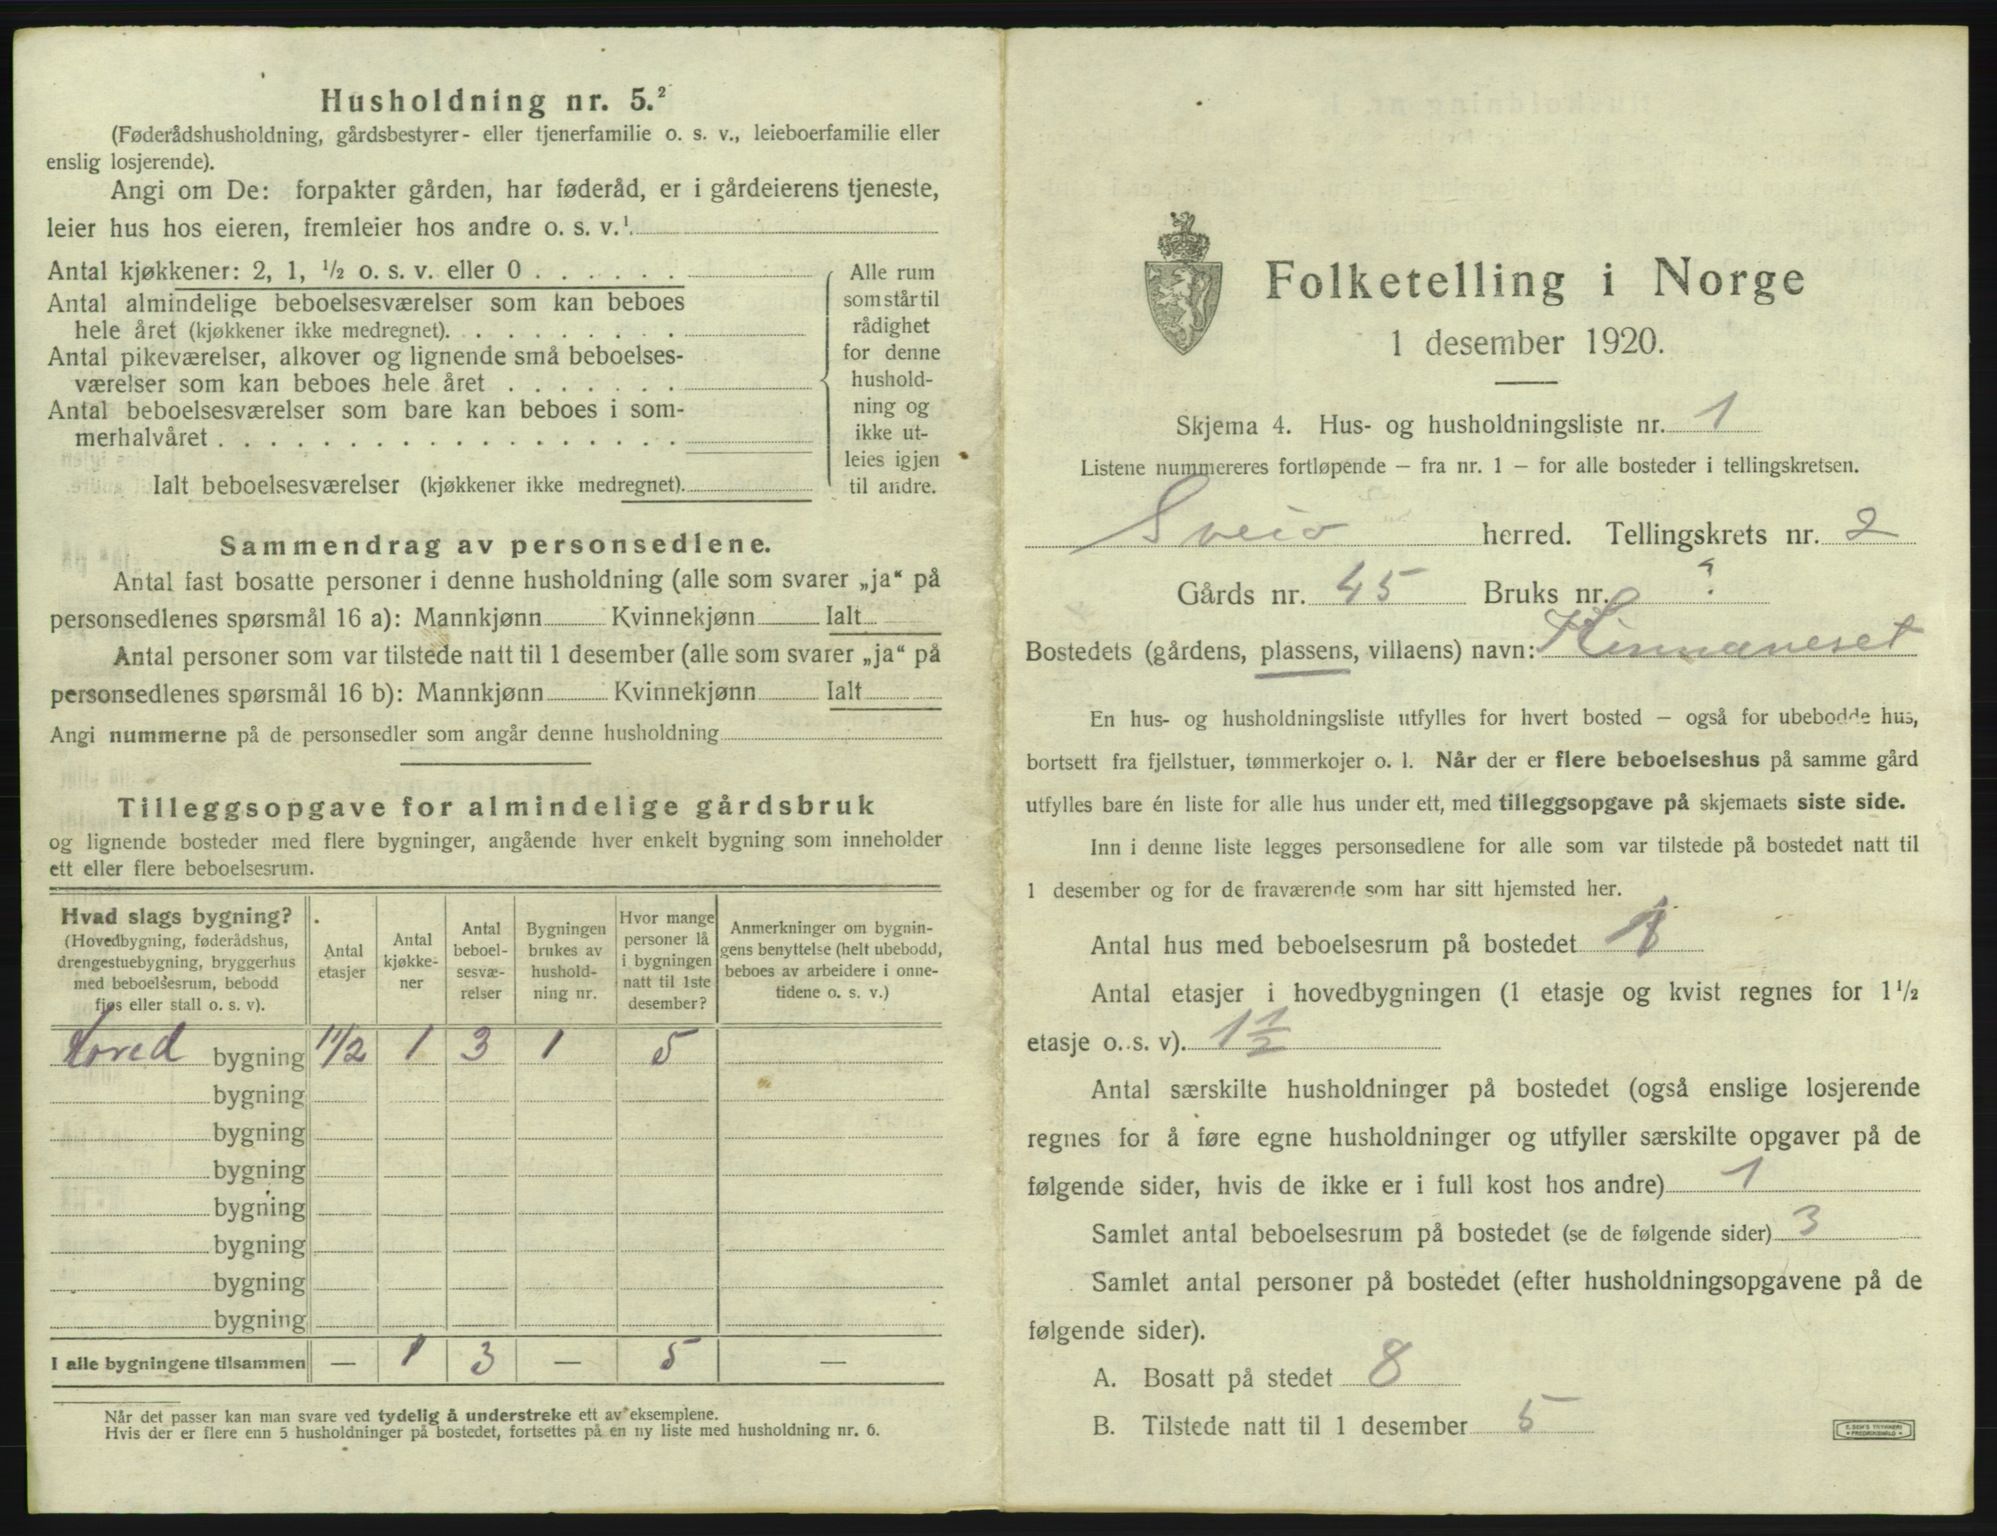 Husholdning nr. 5.²
(Føderådshusholdning, gårdsbestyrer- eller tjenerfamilie o. s. v., leieboerfamilie eller
enslig losjerende).
Angi om De: forpakter gården, har føderåd, er i gårdeierens tjeneste,
leier hus hos eieren, fremleier hos andre o. s. v.¹
Antal kjøkkener: 2, 1, ½ o. s. v. eller 0 . . . . . .
Antal almindelige beboelsesværelser som kan beboes
hele året (kjøkkener ikke medregnet). . . . . . . . .
Antal pikeværelser, alkover og lignende små beboelses-
værelser som kan beboes hele året . . . . . . .
Antal beboelsesværelser som bare kan beboes i som-
merhalvåret . . . . . . . . . . . . . . . . . .
Ialt beboelsesværelser (kjøkkener ikke medregnet).
Alle rum
som står til
rådighet
for denne
hushold-
ning og
ikke ut-
leies igjen
til andre.
Sammendrag av personsedlene.
Antal fast bosatte personer i denne husholdning (alle som svarer „ja“ på
personsedlenes spørsmål 16 a): Mannkjønn Kvinnekjønn Ialt
Antal personer som var tilstede natt til 1 desember (alle som svarer „ja“ på
personsedlenes spørsmål 16 b): Mannkjønn Kvinnekjønn Ialt
Angi nummerne på de personsedler som angår denne husholdning
Tilleggsopgave for almindelige gårdsbruk
og lignende bosteder med flere bygninger, angående hver enkelt bygning som inneholder
ett eller flere beboelsesrum.
Hvad slags bygning?
(Hovedbygning, føderådshus,
drengestuebygning, bryggerhus
med beboelsesrum, bebodd
fjøs eller stall o. s. v).
Antal
etasjer
Antal
kjøkke-
ner
Antal
beboel-
sesvæ-
relser
Bygningen
brukes av
hushold-
ning nr.
Hvor mange
personer lå
i bygningen
natt til 1ste
desember?
Anmerkninger om bygnin-
gens benyttelse (helt ubebodd,
beboes av arbeidere i onne-
tidene o. s. v.)
Hoved bygning 1 1/2 1 3 1 5
bygning
bygning
bygning
bygning
bygning
bygning
bygning
I alle bygningene tilsammen — 1 3 — 5 —
Når det passer kan man svare ved tydelig å understreke ett av eksemplene.
Hvis der er flere enn 5 husholdninger på bostedet, fortsettes på en ny liste med husholdning nr. 6.
Folketelling i Norge
1 desember 1920.
Skjema 4. Hus- og husholdningsliste nr. 1
Listene nummereres fortløpende – fra nr. 1 – for alle bosteder i tellingskretsen.
Sveio herred. Tellingskrets nr. 2
Gårds nr. 45 Bruks nr. ?
Bostedets (gårdens, plassens, villaens) navn:
En hus- og husholdningsliste utfylles for hvert bosted – også for ubebodde hus,
bortsett fra fjellstuer, tømmerkojer o. l. Når der er flere beboelseshus på samme gård
utfylles bare én liste for alle hus under ett, med tilleggsopgave på skjemaets siste side.
Inn i denne liste legges personsedlene for alle som var tilstede på bostedet natt til
1 desember og for de fraværende som har sitt hjemsted her.
Antal hus med beboelsesrum på bostedet 1
Antal etasjer i hovedbygningen (1 etasje og kvist regnes for 1½
etasje o. s. v). 1 1/2
Antal særskilte husholdninger på bostedet (også enslige losjerende
regnes for å føre egne husholdninger og utfyller særskilte opgaver på de
følgende sider, hvis de ikke er i full kost hos andre) 1
Samlet antal beboelsesrum på bostedet (se de følgende sider) 3
Samlet antal personer på bostedet (efter husholdningsopgavene på de
følgende sider).
A. Bosatt på stedet 8
B. Tilstede natt til 1 desember 5